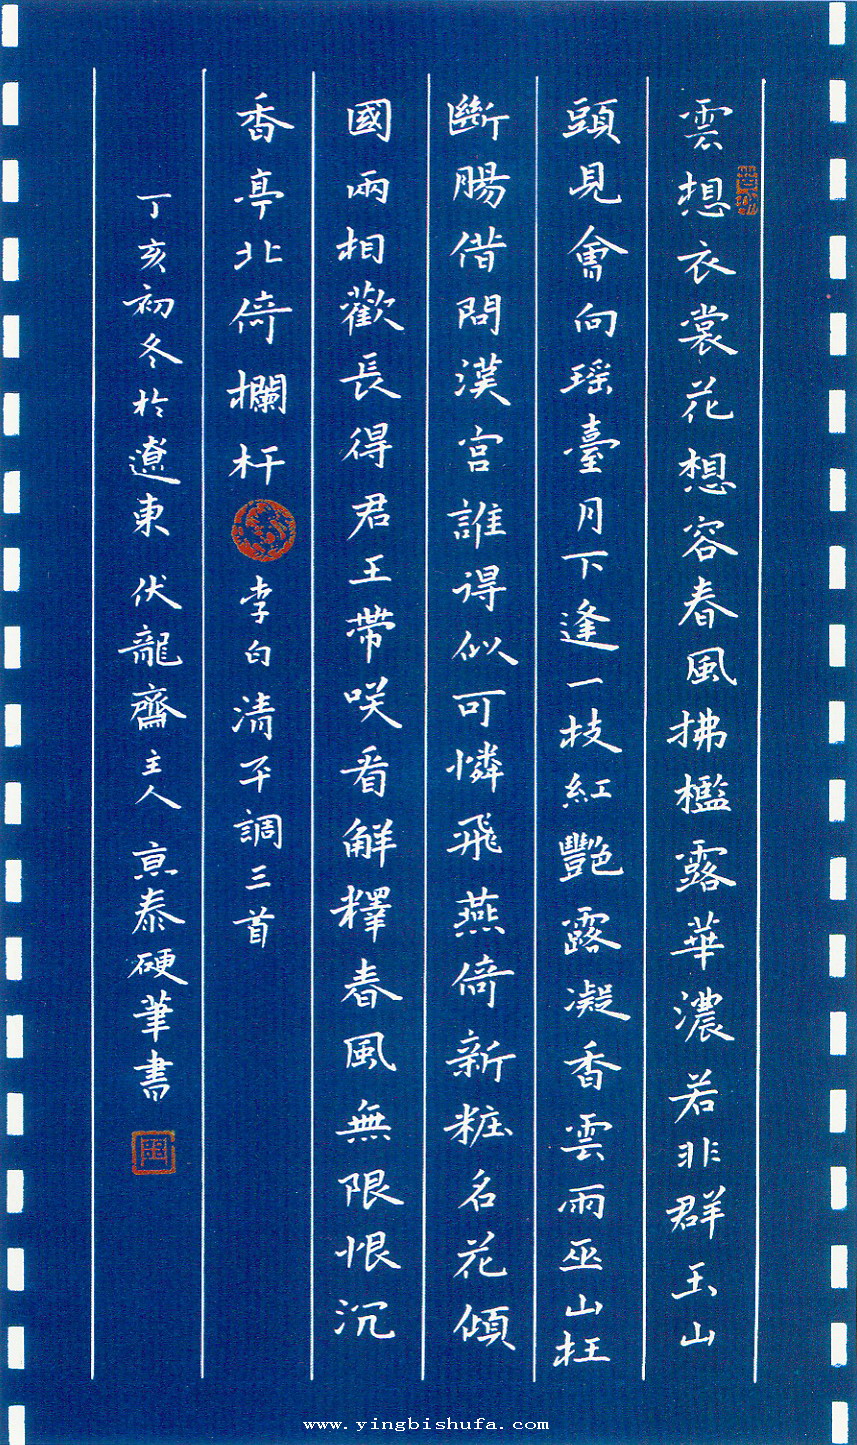 雲想衣裳花想容春風拂檻露華濃若非群玉山
頭見會向瑶臺月下逢一枝紅艷露凝香雲雨巫山枉
斷腸借問漢宮誰得似可憐飛燕倚新粧名花傾
國兩相歡長得君王帶咲看解釋春風無限恨沉
香亭北倚欄杆 李白清平調三首
丁亥初冬於遼東 伏龍齋主人 泰硬筆書
www.yingbishufa.com